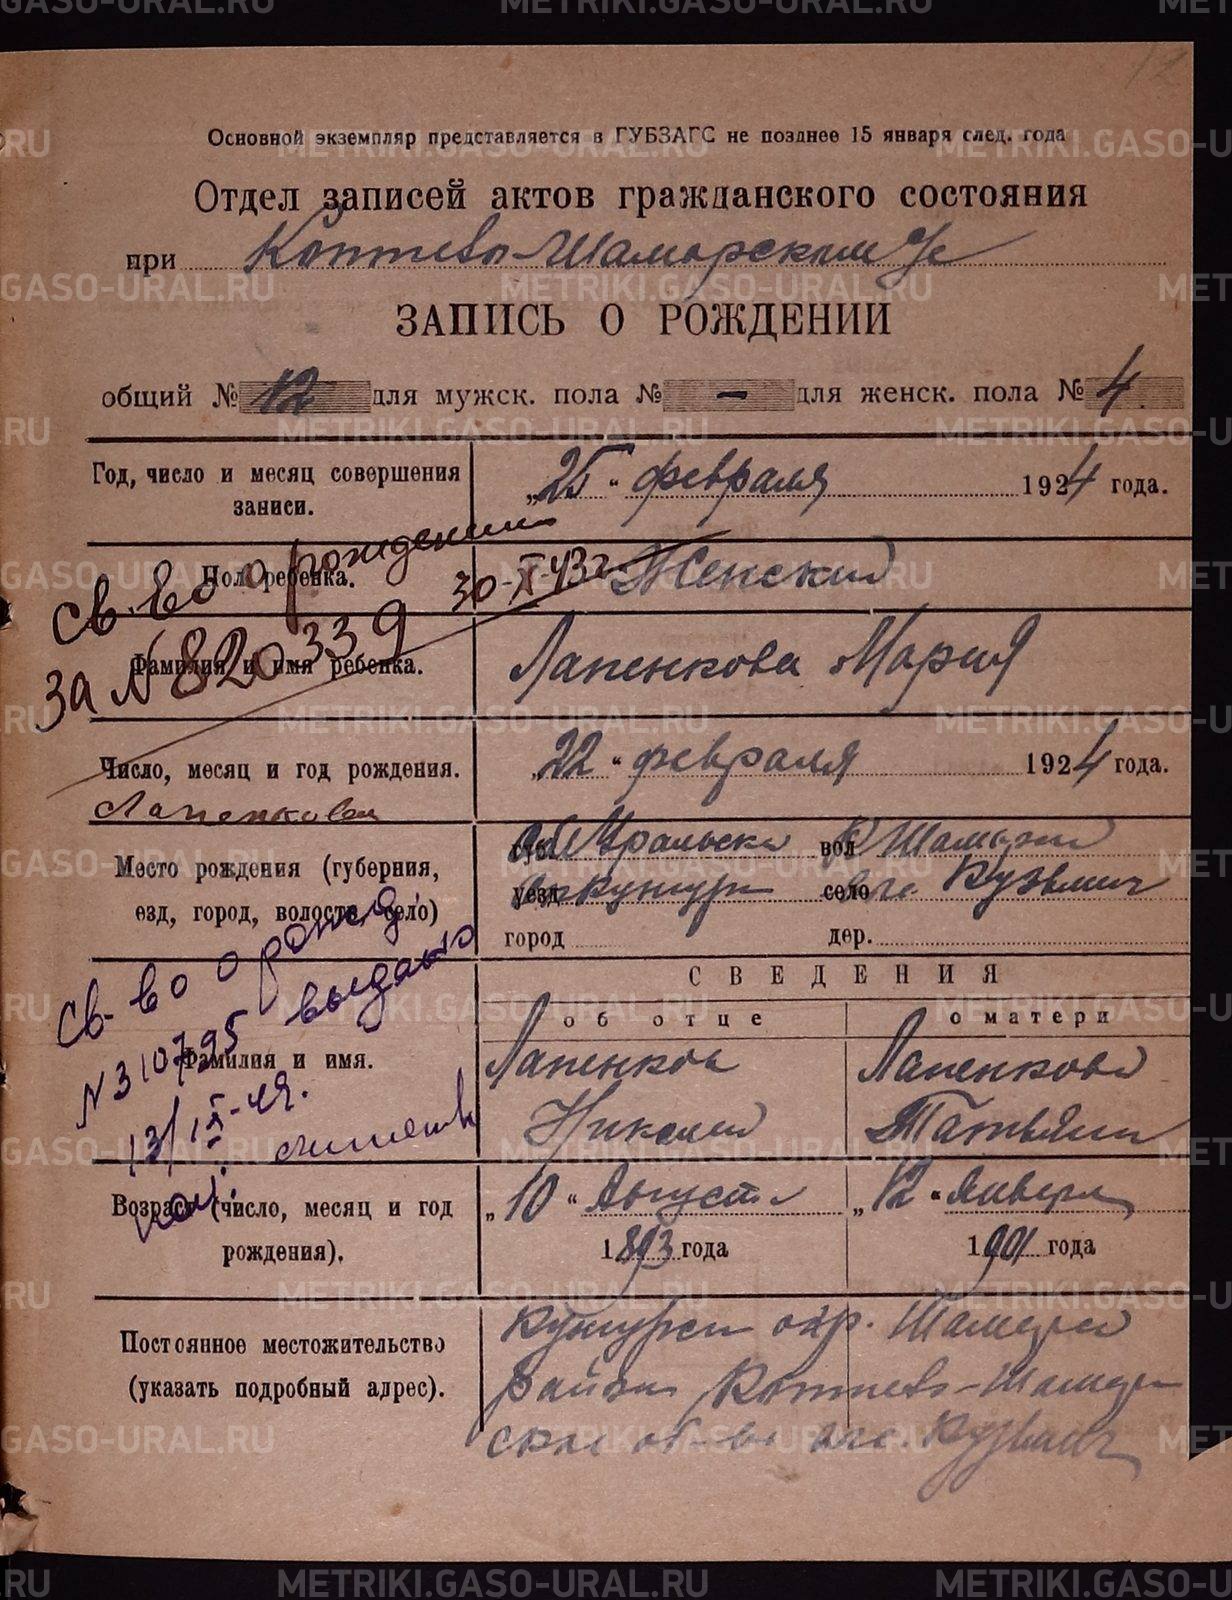 Основной экземпляр представляется в ГУБЗАГС не позднее 15 января след. года
Отдел записей актов гражданского состояния
при Коптево-Шамарском
ЗАПИСЬ О РОЖДЕНИИ
общий № 12 для мужск. пола № - для женск. пола № 4
Год, число и месяц совершения записи.
"25" февраля 1924 года.
св-во о рождении
Пол ребенка.
30-XI-43г
Женский
за № 820339
Фамилия и имя ребенка.
Лапенкова Мария
Число, месяц и год рождения.
"22" февраля 1924 года.
Лапенковой
Место рождения (губерния, езд, город, волость, село)
Обл Уральска вол
уезд Кунгур село
город
дер.
СВЕДЕНИЯ
об отце
о матери
св-во о рожд.
№ 310795 выдано
13/IX-49.
Фамилия и имя.
Лапенков
Николай
Лапенкова
Татьяна
Возраст (число, месяц и год рождения).
"10" Августа
1893 года
"12" Января
1901 года
Постоянное местожительство (указать подробный адрес).
окр.
Района Коптево-
METRIKI.GASO-URAL.RU